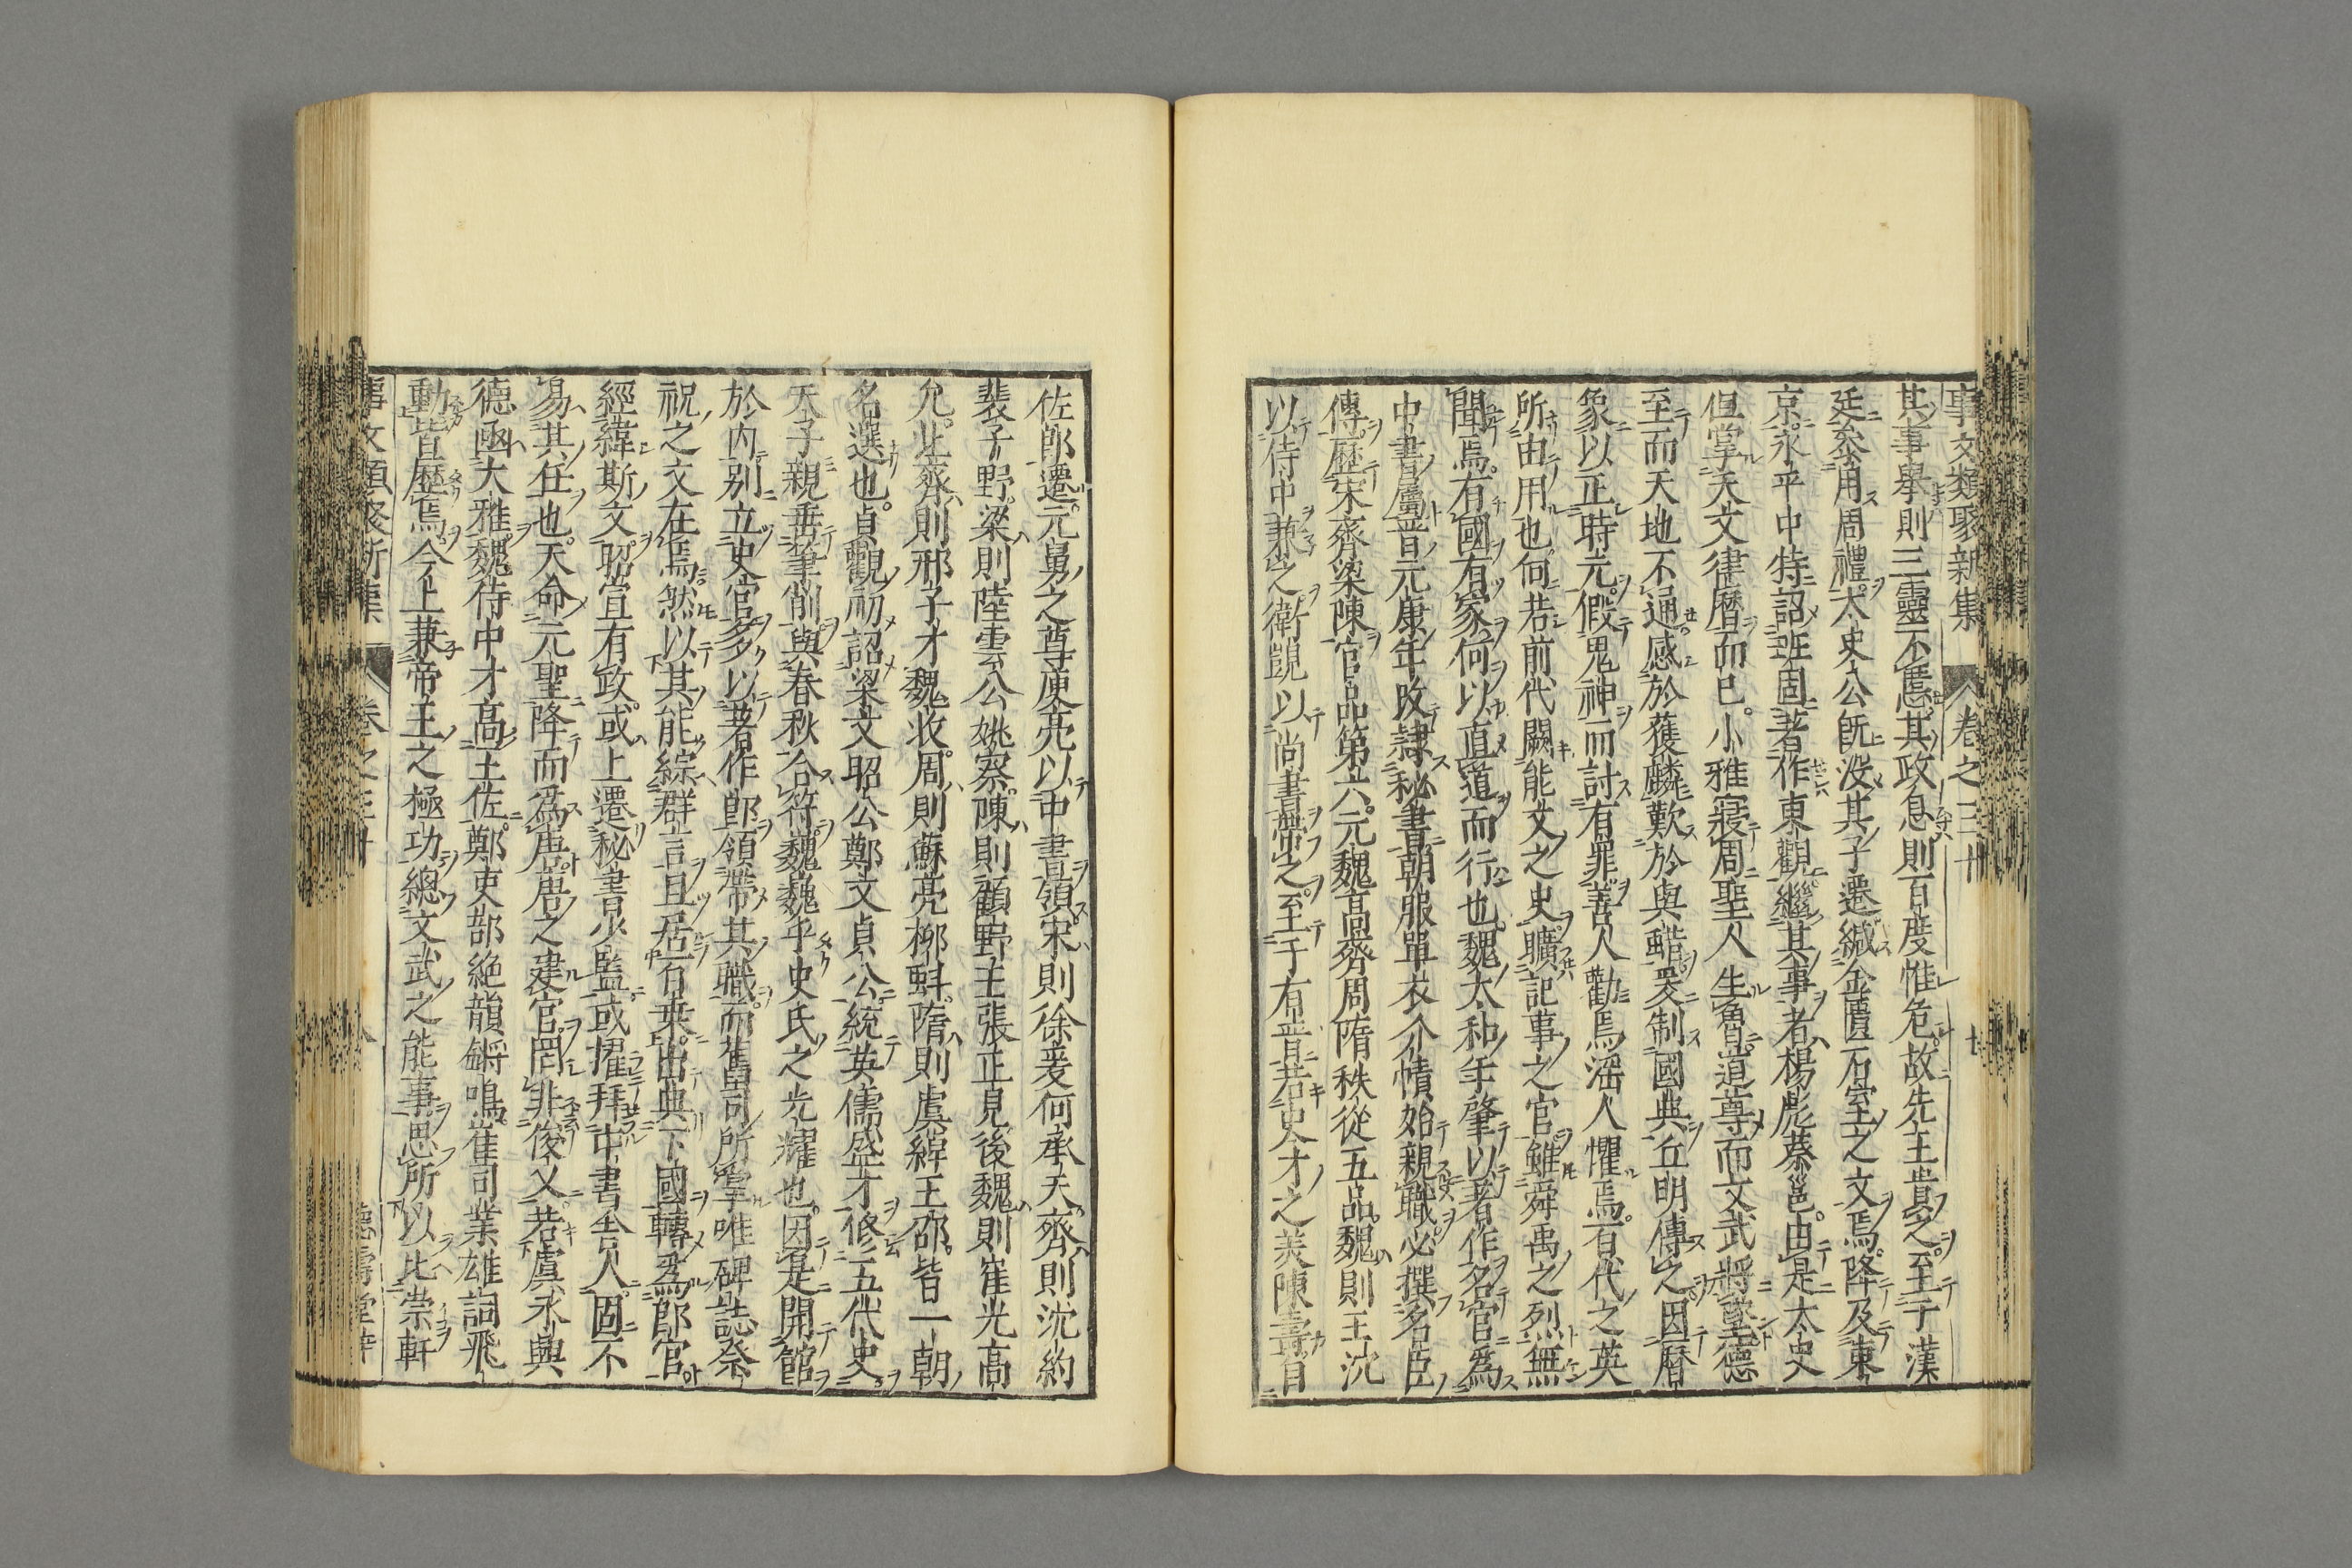 事文類聚新集 卷之三十 七
其事擧則三靈不慝其政息則百度惟危故先王貴之至于漢
廷叅用周禮太史公旣没其子遷緘金匱石室之文焉降及東
京永平中特詔班固著作東觀繼其事者楊彪蔡邕由是太史
但掌天文律曆而已小雅寢周聖人生魯道尊而文武將墜德
至而天地不通感於獲麟歎於與蜡爰制國典丘明傳之因曆
象以正時元假鬼神而討有罪善人勸焉滛人懼焉百代之英
所由用也何若前代闕能文之史曠記事之官雖舜禹之烈無
聞焉有國有家何以直道而行也魏太和年肇以著作名官爲
中書屬晋元康年改隷秘書朝服單衣介幘始親職必撰名臣
傳歷宋齊梁陳官品第六元魏高齊周隋秩從五品魏則王沈
以侍中兼之衛覬以尚書帶之至于有晋若史才之美陳壽自
佐郎遷元舅之尊庾亮以中書領宋則徐爰何承天齊則沈約
裴子野梁則陸雲公姚察陳則顧野王張正見後魏則崔光高
允北齊則邢子才魏收周則蘇亮柳虯隋則虞綽王邵皆一朝
名選也貞觀初詔梁文昭公鄭文貞公統英儒盛才修五代史
天子親垂筆削與春秋合符巍巍乎史氏之光耀也因是開館
於内别立史官多以著作郎領帶其職而舊司所掌唯碑誌祭
祝之文在焉然以其能綜群言且居百乗出典下國轉爲郎官
經緯斯文昭宣有政或上遷秘書少監或擢拜中書舎人固不
易其任也天命元聖降而爲唐唐之建官罔非俊乂若虞永興
德凾大雅魏侍中才高王佐鄭吏部絶韻鏘鳴崔司業雄詞飛
動皆歷焉今上兼帝王之極功總文武之能事思所以比崇軒
事文類聚新集 卷之三十 八 德壽堂梓